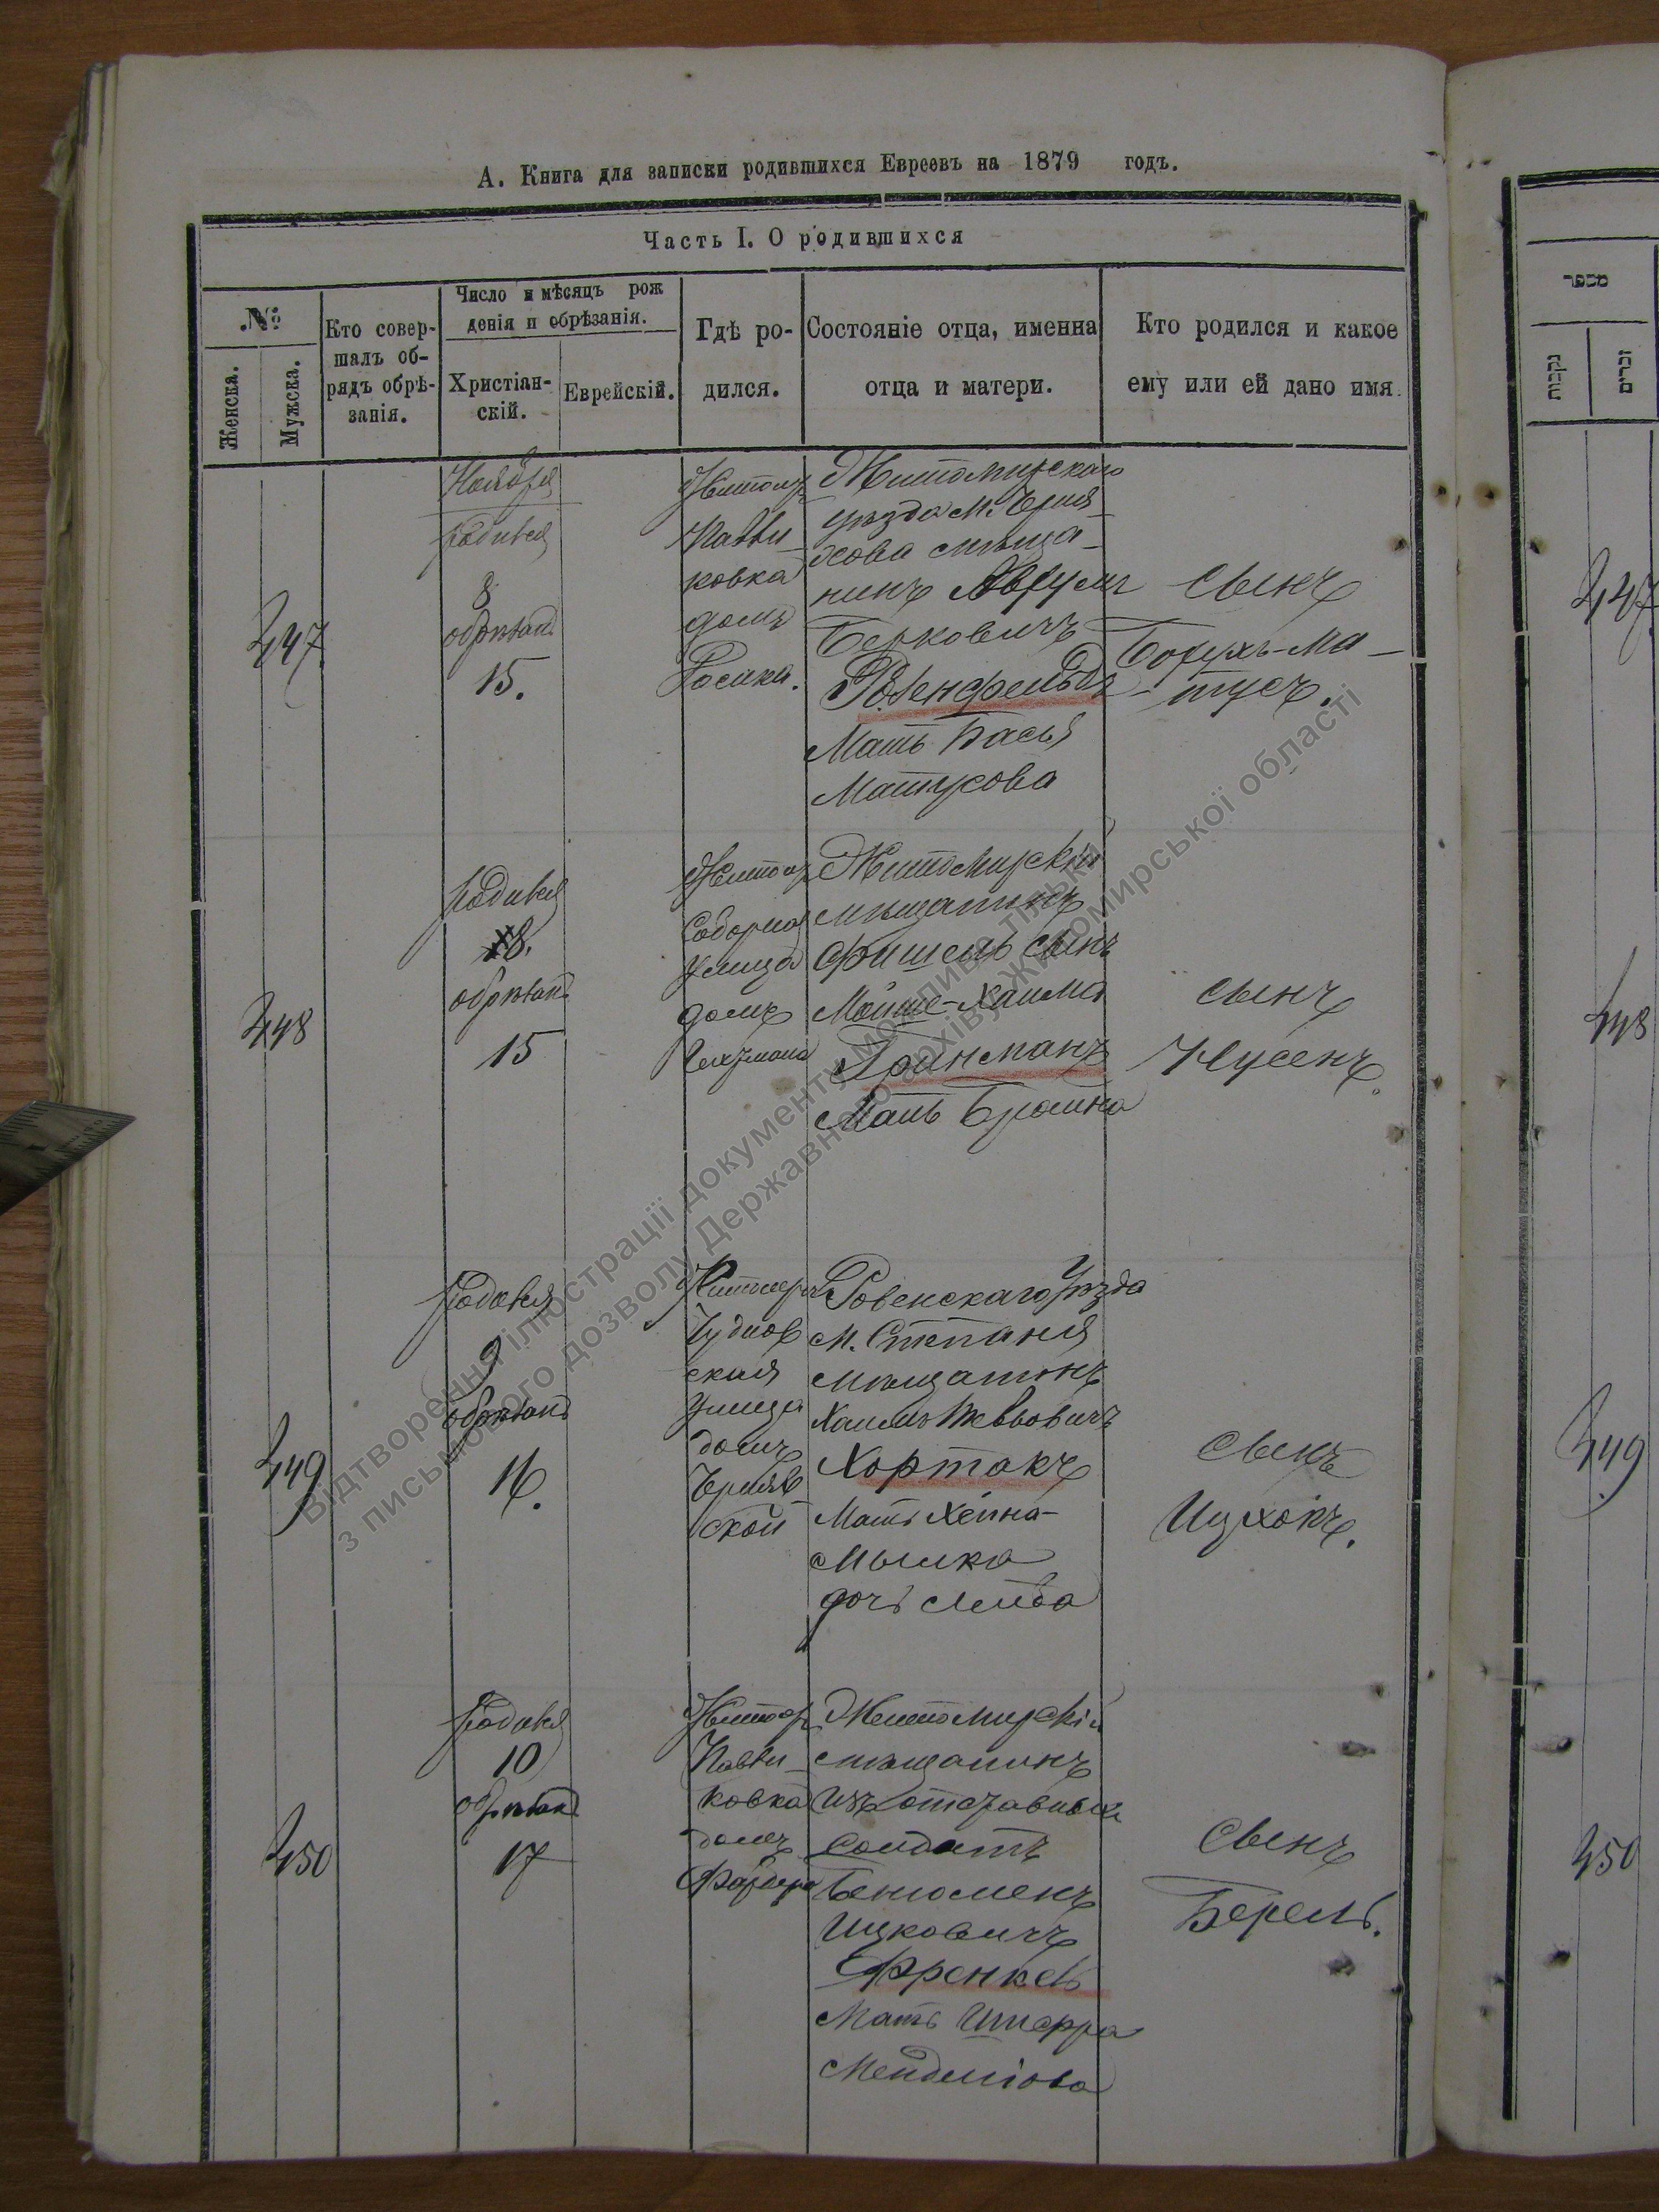 А. Книга для записки родившихся Евреевъ на 1879 годъ.
Часть I. О родившихся
№
Женска.
Мужска.
Кто совер-
шалъ об-
рядъ обрѣ-
занія.
Число и мѣсяцъ рож
денія и обрѣзанія.
Христіан-
скій.
Еврейскій.
Гдѣ ро-
дился.
Состояніе отца, именна
отца и матери.
Кто родился и какое
ему или ей дано имя.
447
Ноября
родився
8
обрѣзанъ
15.
Житомир
ковка
домъ
Житомирскаго
уѣзда м. Черня-
хова мѣща-
нинъ Аврумъ
Берковичъ
Розенфельдъ
Мать Бася
Матусова
сынъ
Борухъ-Ма-
тусъ.
448
родився
8.
обрѣзанъ
15
Житомир
Соборная
улица
домъ
Житомирскій
мѣщанинъ
Фишель сынъ
Мойше-Хаима
Гринманъ
Мать Брайна
сынъ
Нусенъ.
449
родився
9
обрѣзанъ
16.
Житомир
Чуднов
ская
улица
домъ
Черняв
ской
Ровенскаго уѣзда
м. Степаня
мѣщанинъ
Хаимъ Левьовичъ
Хортакъ
Мать Хейна-
Мымка
дочь Лейба
сынъ
Ицхокъ.
450
родився
10
обрѣзанъ
17
Житомир
ковка
домъ
Житомирскій
мѣщанинъ
изъ отставныхъ
солдатъ
Бенюменъ
Ицковичъ
Френкель
Мать
Менделіова
сынъ
Берель.
מספר
נקבות
זכרים
447
448
449
450
Відтворення ілюстрації документу можливе тільки
з письмового дозволу Державного архіву Житомирської області